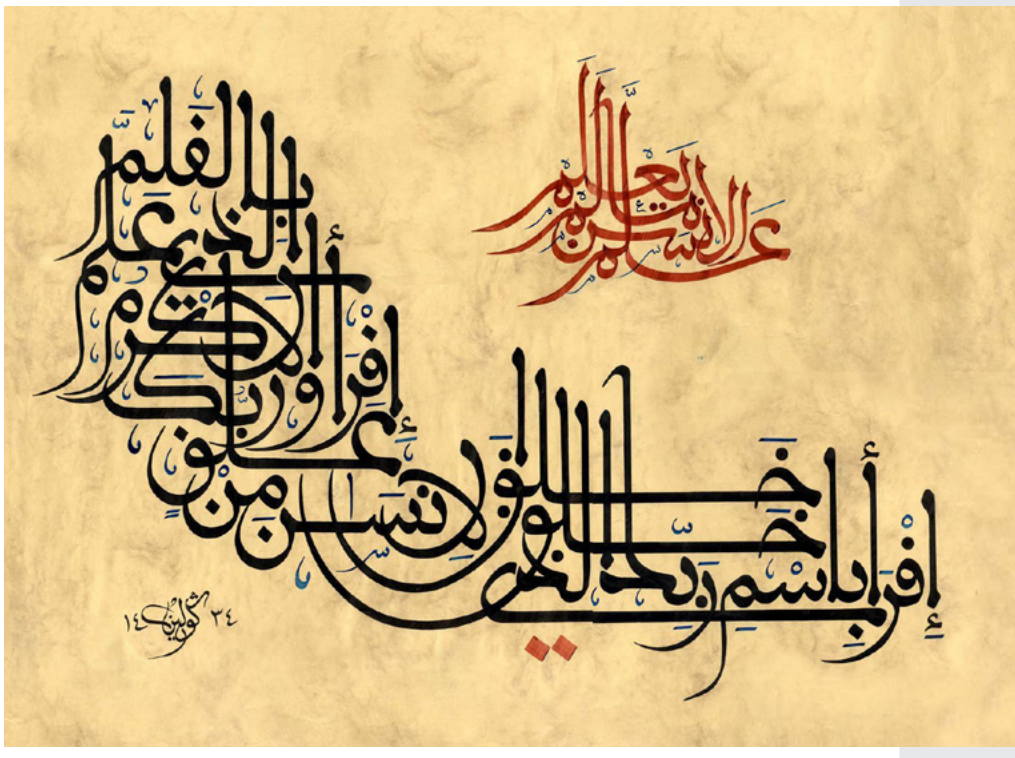 إقرأ باسم ربك الذي خلق
خلق الإنسن من علق
إقرأ وربك الأكرم
الذي علم بالقلم
علم الإنسن ما لم يعلم
١٤٣٤